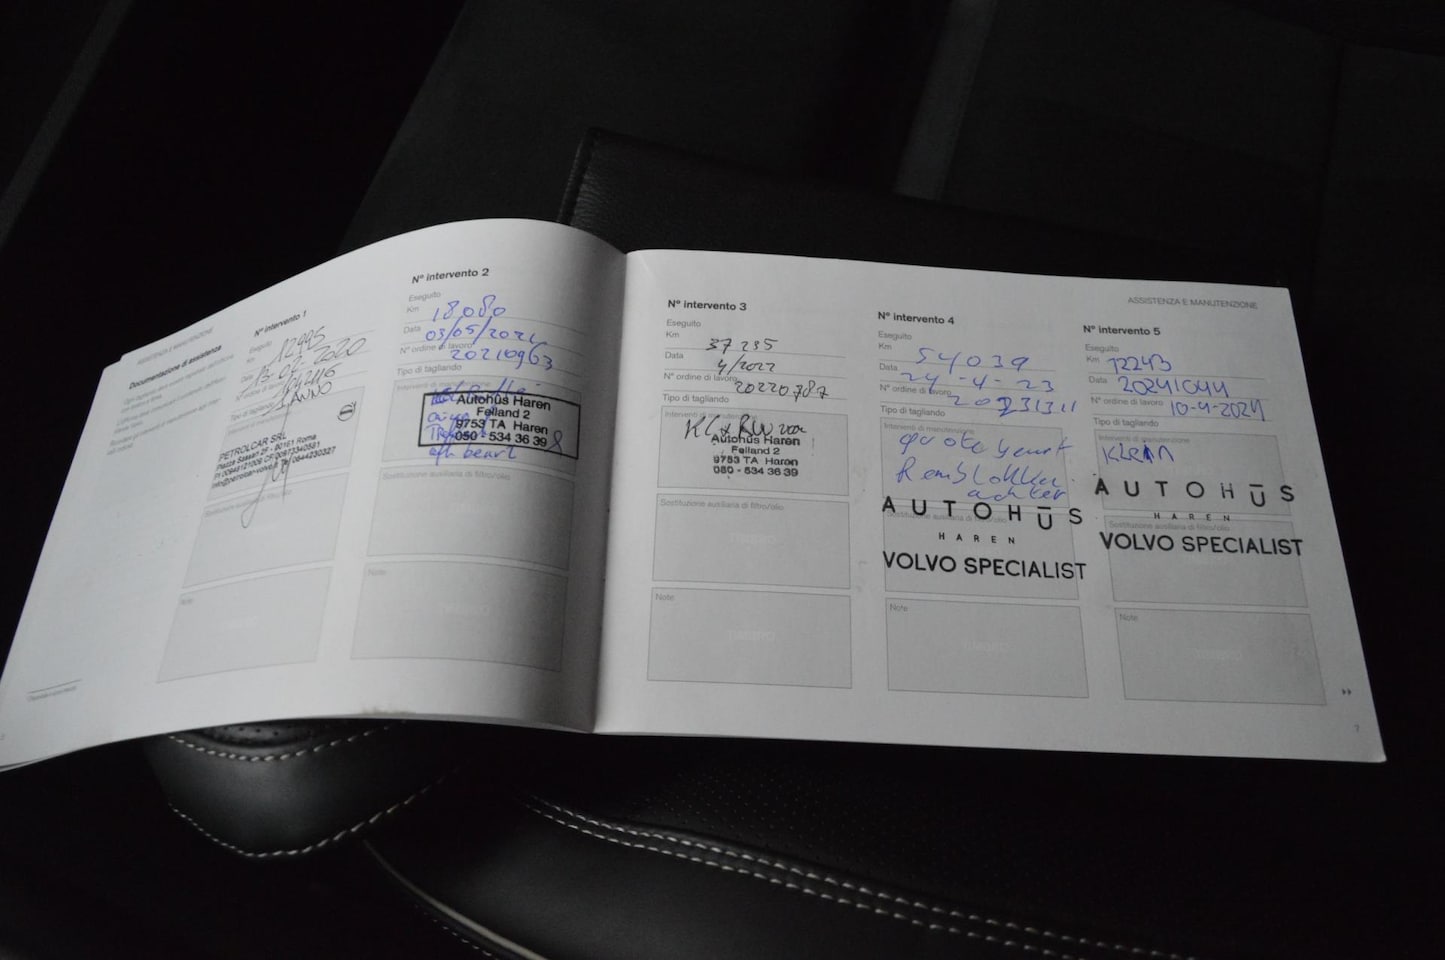 ASSISTENZA E MANUTENZIONE
Documentazione di assistenza
N° intervento 1
Eseguito
Km 12995
Data 13-02-2020
N° ordine di lavoro
Tipo di tagliando 1 ANNO
PETROLCAR SRL
Piazza Sassari 2F - 00161 Roma
N° intervento 2
Eseguito
Km 18080
Data 03/05/2021
N° ordine di lavoro
20210963
Tipo di tagliando
Interventi di manutenzione
Autohûs Haren
Felland 2
9753 TA Haren
050 - 534 36 39
beurt
Sostituzione ausiliaria di filtro/olio
Note
TIMBRO
N° intervento 3
Eseguito
Km 37235
Data 4/2022
N° ordine di lavoro 20220787
Tipo di tagliando
Interventi di manutenzione
Autohûs Haren
Felland 2
9753 TA Haren
050 - 534 36 39
Sostituzione ausiliaria di filtro/olio
TIMBRO
Note
TIMBRO
ASSISTENZA E MANUTENZIONE
N° intervento 4
Eseguito
Km 54039
Data 24-4-23
N° ordine di lavoro 20231311
Tipo di tagliando
Interventi di manutenzione
grote beurt
Remblokken
achter
AUTOHŪS
HAREN
VOLVO SPECIALIST
Note
TIMBRO
N° intervento 5
Eseguito
Km 72243
Data 20241044
N° ordine di lavoro 10-4-2024
Tipo di tagliando
Interventi di manutenzione
Klein
AUTOHŪS
HAREN
Sostituzione ausiliaria di filtro/olio
VOLVO SPECIALIST
Note
7